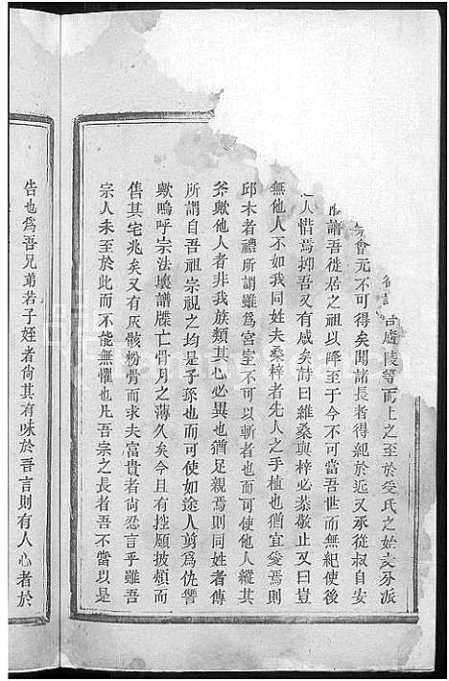 吉廬陵等而上之至於受氏之始支分派
會元不可得矣聞諸長者得紀於近又承從叔自安
諸吾徙居之祖以降至于今不可當吾世而無紀使後
人惜焉抑吾又有感矣詩曰維桑與梓必恭敬止又曰豈
無他人不如我同姓夫桑梓者先人之手植也猶宜愛焉則
邱木者禮所謂雖為宮室不可以斬者也而可使他人縱其
斧歟他人者非我族類其心必異也猶足親焉則同姓者傳
所謂自吾祖宗視之均是子孫也而可使如途人剪為仇讐
歟嗚呼宗法壞譜牒亡骨月之薄久矣今且有控願披頰而
售其宅兆矣又有灰骸粉骨而求夫富貴者尙忍言乎雖吾
宗人未至於此而不能無懼也凡吾宗之長者吾不當以是
告也為吾兄弟若子姪者尙其有味於吾言則有人心者於